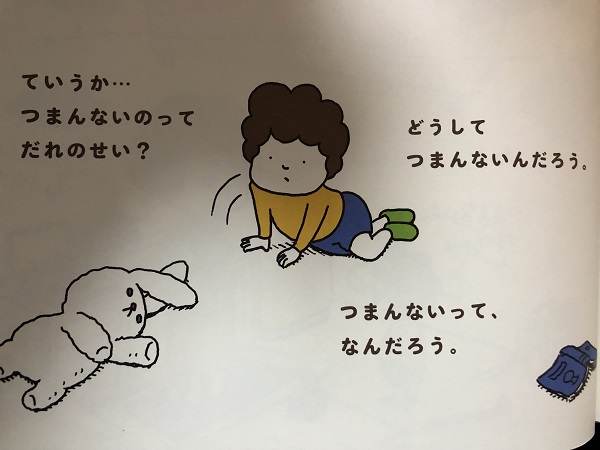 ていうか…
つまんないのって
だれのせい？
どうして
つまんないんだろう。
つまんないって、
なんだろう。